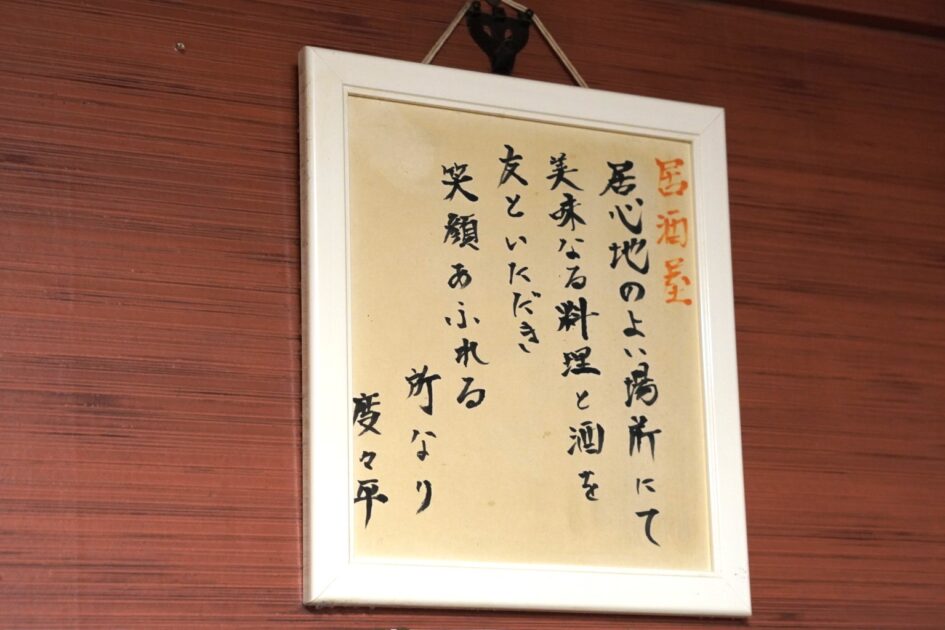 居酒屋
居心地のよい場所にて
美味なる料理と酒を
友といただき
笑顔あふれる
所なり
度々平